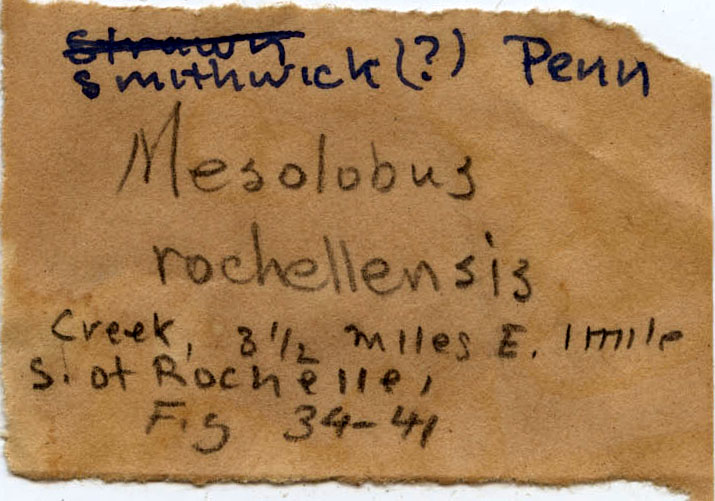 Strawn
Smithwick (?) Penn
Mesolobus
rochellensis
Creek, 3 1/2 miles E. 1 mile
S. of Rochelle,
Fig 34-41